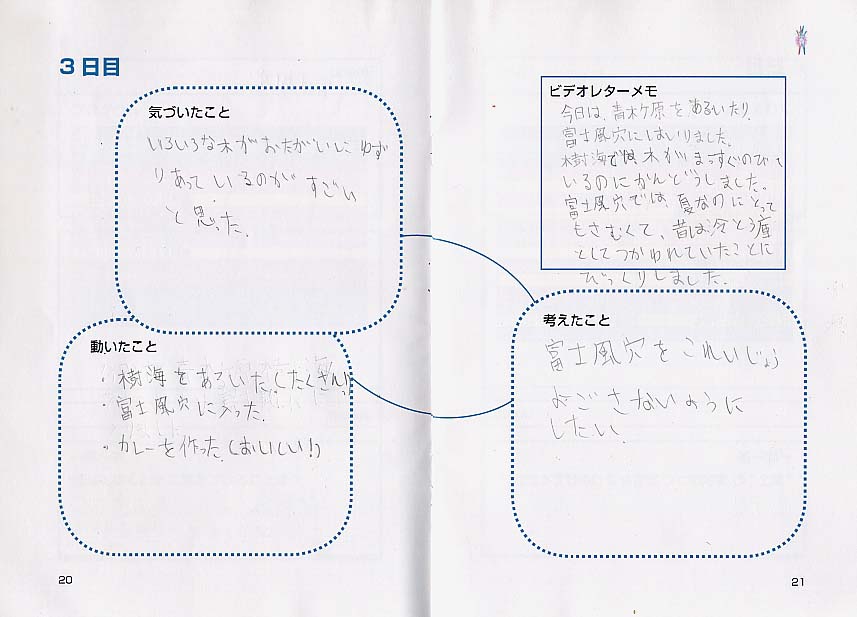 3日目
気づいたこと
いろいろな木がおたがいにゆず
りあっているのがすごい
と思った。
動いたこと
・樹海をあるいた。(たくさん)
・富士風穴に入った。
・カレーを作った。(おいしい!)
20
ビデオレターメモ
今日は、青木ケ原をあるいたり、
富士風穴にはいりました。
樹海では、木がまっすぐのびて
いるのにかんどうしました。
富士風穴では、夏なのにとって
もさむくて、昔は冷とう庫
としてつかわれていたことに
びっくりしました。
考えたこと
富士風穴をこれいじょう
よごさないように
したい。
21